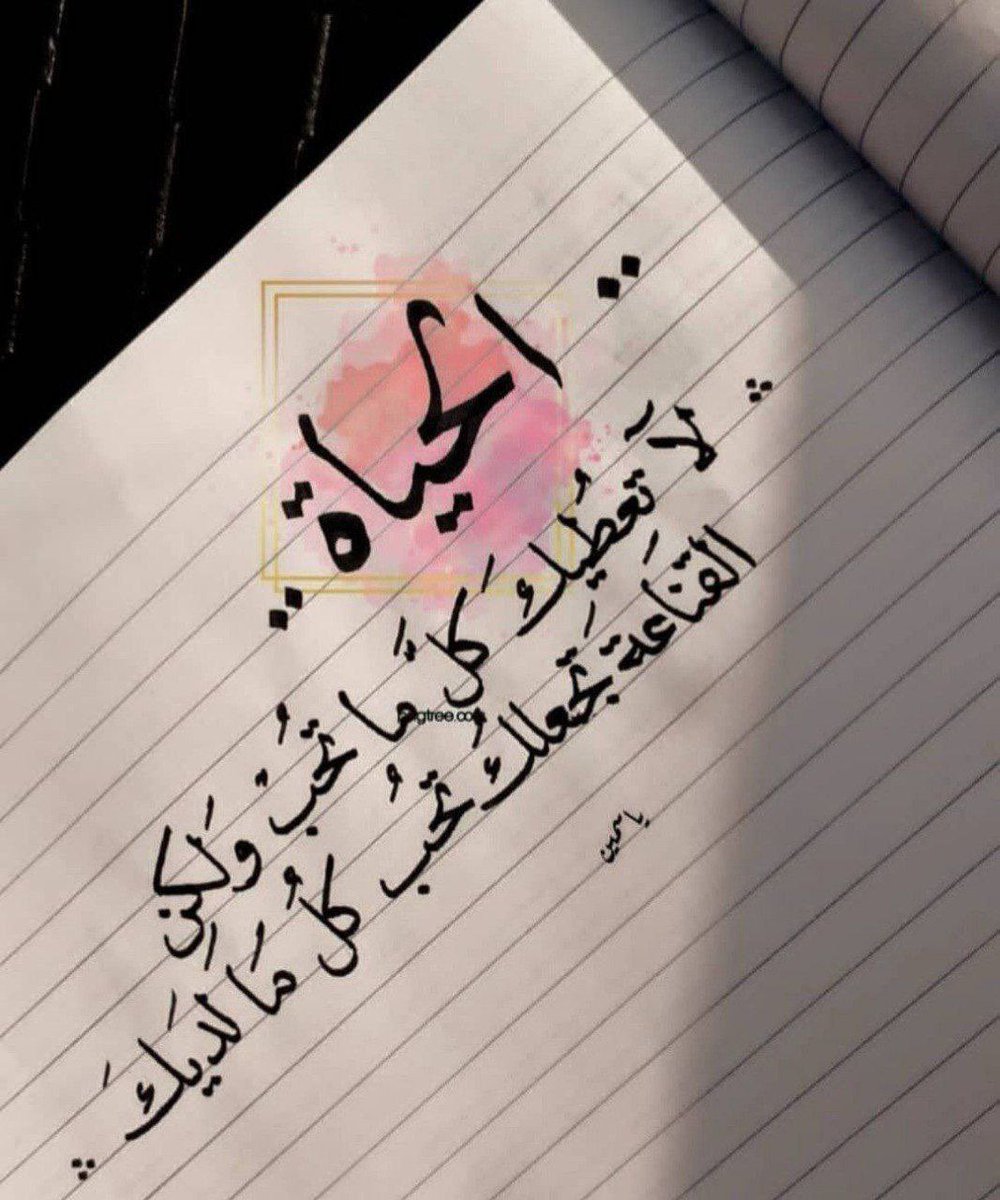 الحياة
لَا تَعطِيُك كَل مَا تُحبُ وَلَكِن
القنَاعِة تَجعلك تُحب كلُ مَا لديَكَ
ياسمين
pngtree.com